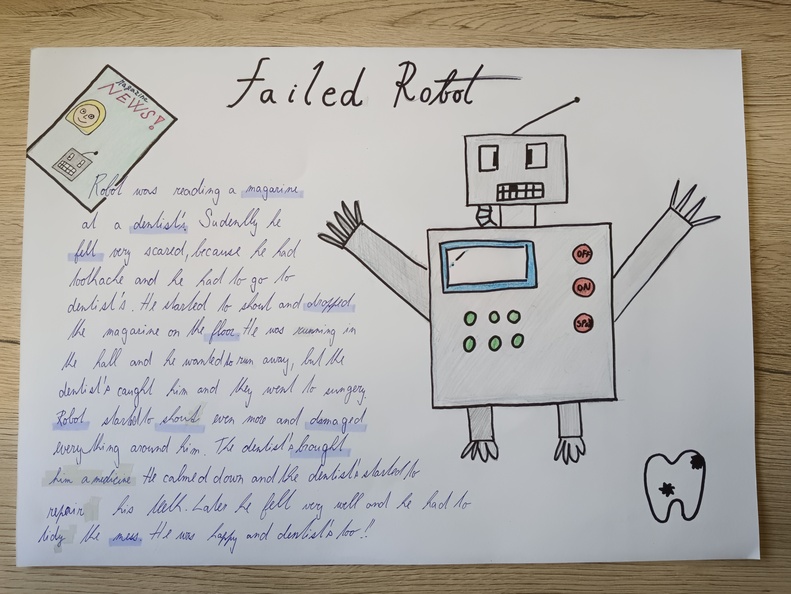 Failed Robot
Magazine
NEWS!
Robot was reading a magazine
at a dentist's. Sudenlly he
fell very scared, because he had
toothache and he had to go to
dentist's. He started to shout and dropped
the magazine on the floor. He was running in
the hall and he wanted to run away, but the
dentist's caught him and they went to surgery.
Robot started to shout even more and damaged
everything around him. The dentist's brought
him a medicine. He calmed down and the dentist's started to
repair his teeth. Later he fell very well and he had to
tidy the mess. He was happy and dentist's too!!
OFF
ON